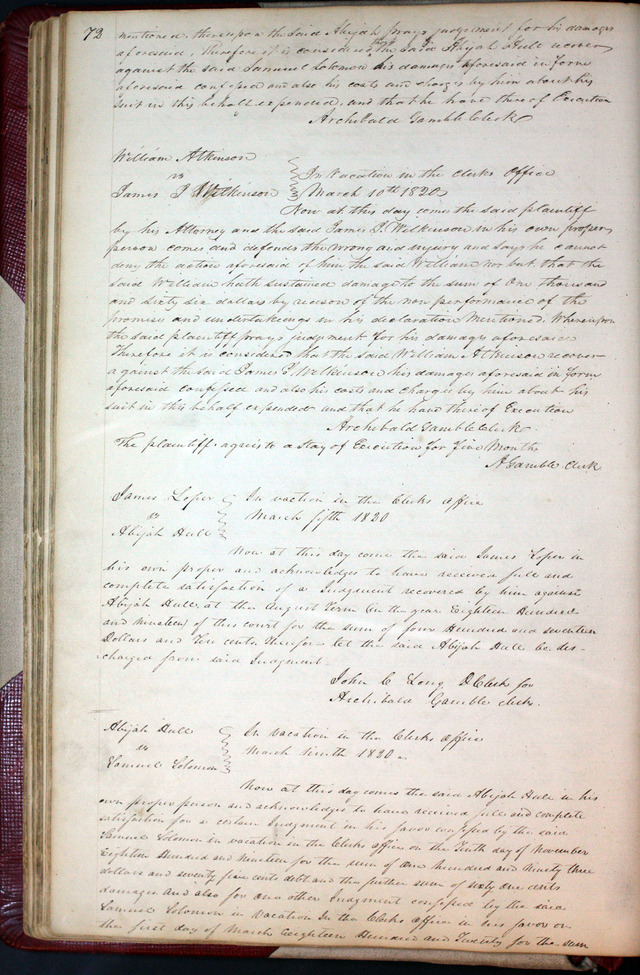 72
mentioned, thereupon the said Abijah prays judgement for his damages
aforesaid, Therefore it is considered that the said Abijah Hull recover
against the said Samuel Solomon his damages aforesaid in form
aforesaid confessed and also his costs and charges by him about his
suit in this behalf expended, and that he have thereof Execution
Archibald Gamble Clerk
William Atkinson
vs
James P Wilkinson
In Vacation in the Clerks Office
March 10th 1820
Now at this day comes the said plaintiff
by his Attorney and the said James P. Wilkinson in his own proper
person comes and defends the wrong and injury and says he cannot
deny the action aforesaid of him the said William nor but that the
said William hath sustained damage to the sum of One thousand
and sixty six dollars by reason of the non performance of the
promises and undertakings in his declaration mentioned. Whereupon
the said plaintiff prays judgment for his damages aforesaid
Therefore it is considered that the said William Atkinson recover
against the said James P. Wilkinson his damages aforesaid in form
aforesaid confessed and also his costs and charges by him about his
suit in this behalf expended and that he have thereof Execution
Archibald Gamble Clerk
The plaintiff agrees to a Stay of Execution for Five Months
A Gamble Clerk
James Loper
vs
Abijah Hull
In vaction in the Clerks office
March fifth 1820
Now at this day come the said James Loper in
his own proper and acknowledges to have received full and
complete satisfaction of a Judgment recovered by him against
Abijah Hull, at the August Term (in the year Eighteen Hundred
and nineteen) of this court for the sum of four Hundred and seventeen
Dollars and Ten cents, therefore let the said Abijah Hull be dis-
charged from said Judgment.
John C Long D Clerk for
Archibald Gamble clerk.
Abijah Hull
vs
Samuel Solomon
In vacation in the Clerks office
March tenth 1820
Now at this day comes the said Abijah Hull in his
own proper person and acknowledges to have received full and complete
satisfaction for a certain Judgment in his favor confessed by the said
Samuel Solomon in vacation in the Clerks office on the Tenth day of November
Eighteen Hundred and nineteen for the sum of One Hundred and Ninety three
dollars and seventy five cents debt and the further sum of sixty one cents
damages and also for one other Judgment confessed by the said
Samuel Solomon in Vacation In the Clerks office in his favor on
the first day of March Eighteen Hundred and Twenty for the sum